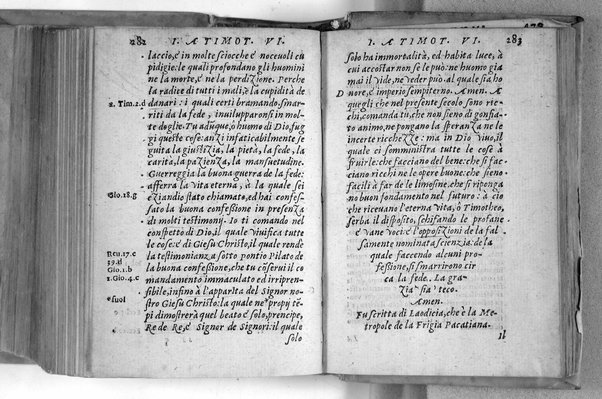 282 I. A TIMOT. VI.
laccio, è in molte sciocche è noceuoli cu
pidigie: le quali profondano gli huomini
ne la morte, è ne la perdizione. Perche
la radice di tutti i mali, è la cupidità de
2. Tim. 2.d danari: i quali certi bramando, smar-
riti da la fede, inuilupparonsi in mol-
te doglie. Tu adunque, ò huomo di Dio, fug
gi queste cose: anzi infaticabilmente se
guita la giustizia, la pietà, la fede, la
carità, la pazienza, la mansuetudine.
Guerreggia la buona guerra de la fede:
afferra la vita eterna, à la quale sei
Gio. 18.g eziandio stato chiamato, ed hai confes-
sato la buona confessione in presenza
di molti testimonij. Io ti comando nel
conspetto di Dio, il quale viuifica tutte
le cose: è di Giesu Christo, il quale rendè
Reu. 17.c la testimonianza sotto pontio Pilato de
Gio. 1.b la buona confessione, che tu conserui il co
1. Gio. 4.c mandamento immaculato ed irripren-
sibile, infino à l'apparita del Signor no-
suoi stro Giesu Christo: la quale ne° propij tē
pi dimostrerà quel beato è solo, prencipe,
Re de Re, è Signor de Signori: il quale
solo
I. A TIMOT. VI. 283
solo ha immortalità, ed habita luce, à
cui accostar non se le può: ne huomo gia
mai il vide, ne veder può. al quale sia ho
D nore, è imperio sempiterno. Amen. A
quegli che nel presente secolo sono ric-
chi, comanda tu, che non sieno di gonfia-
to animo, ne pongano la speranza ne le
incerte ricchezze: ma in Dio viuo, il
quale ci somministra tutte le cose à
fruirle: che facciano del bene: che si fac-
ciano ricchi ne le opere buone: che sieno
facili à far de le limosine, che si ripongā
no buon fondamento nel futuro: à cio
che riceuano l'eterna vita. ò Timotheo,
serba il disposito, schifando le profane
è vane voci: è l'opposizioni de la fal
samente nominata scienzia: de la
quale faccendo alcuni pro-
fessione, si smarrirono cir
ca la fede. La gra-
zia sia teco.
Amen.
Fu scritta di Laodicia, che è la Me-
tropole de la Frigia Pacatiana.
Il